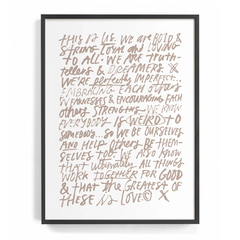 THIS IS US. WE ARE BOLD &
STRONG. LOVE AND LOVING
TO ALL. WE ARE TRUTH-
TELLERS & DREAMERS
WE'RE PERFECTLY IMPERFECT...
EMBRACING EACH OTHERS
WEAKNESSES & ENCOURAGING EACH
OTHERS STRENGTHS. WE KNOW
EVERYBODY IS WEIRD TO
SOMEBODY... SO WE BE OURSELVES
AND HELP OTHERS BE THEM-
SELVES TOO. WE ALSO KNOW
THAT ULTIMATELY ALL THINGS
WORK TOGETHER FOR GOOD
& THAT THE GREATEST OF
THESE IS LOVE X